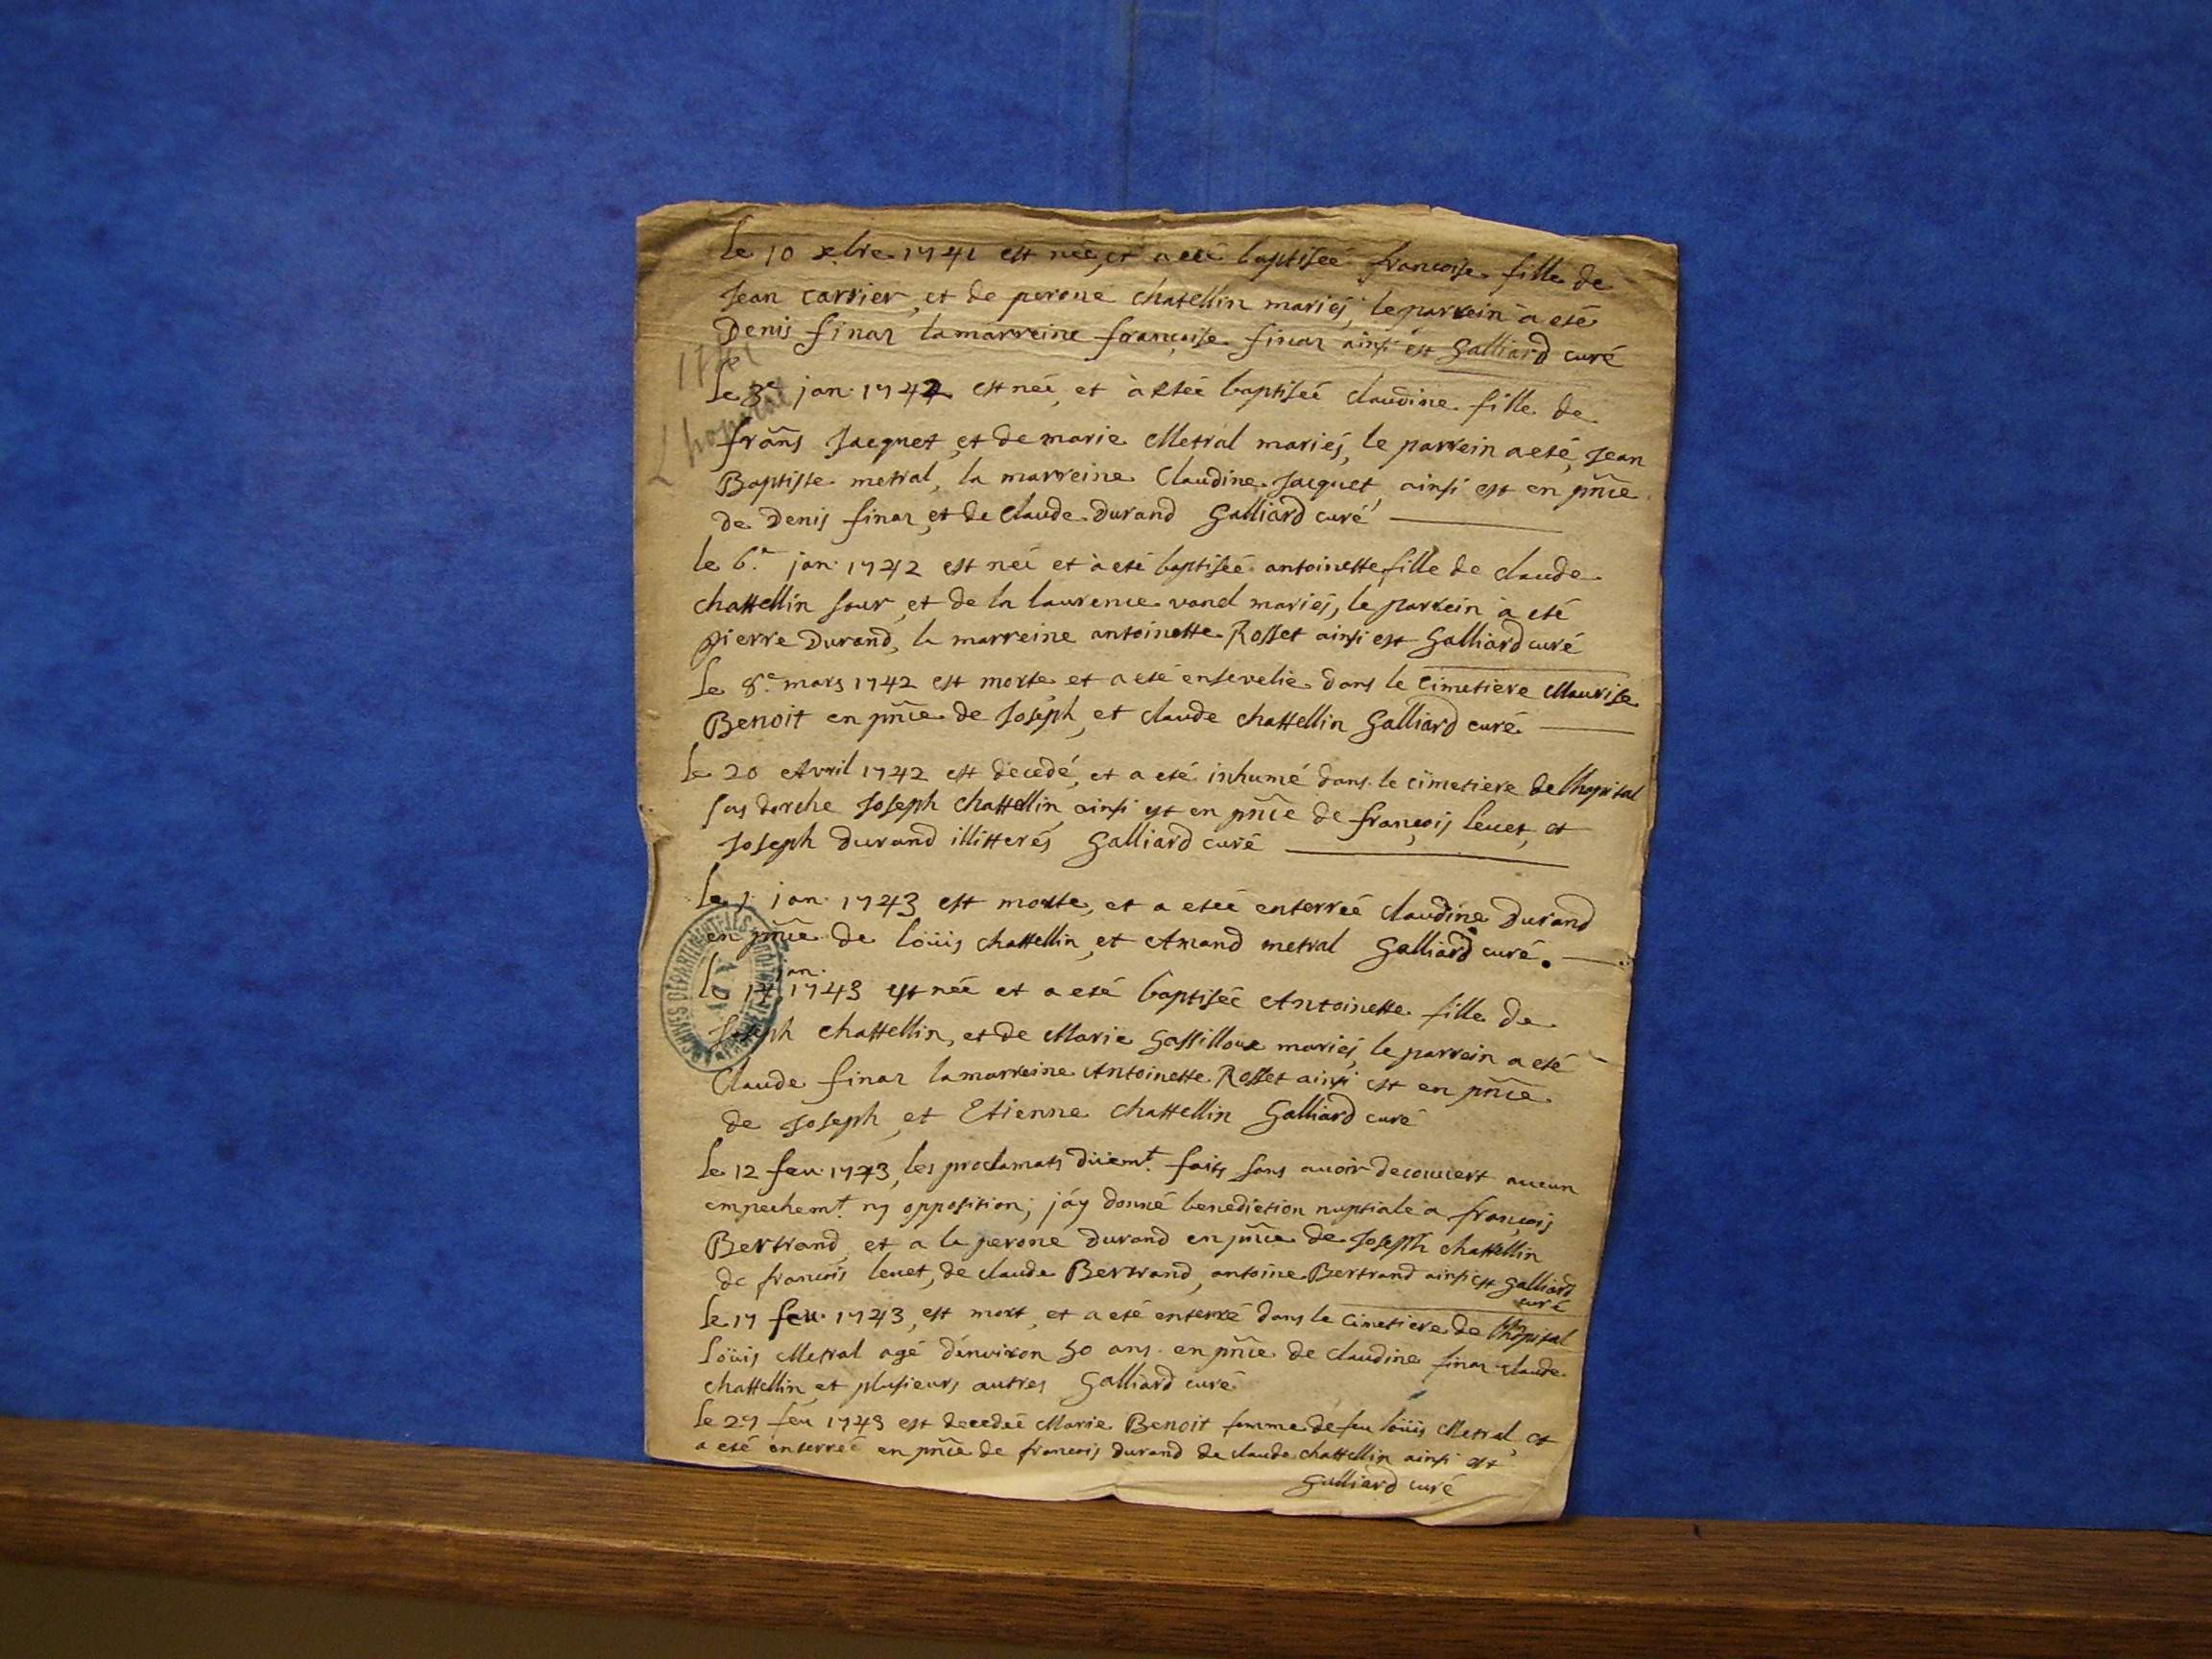 Le 10 xbre 1741 est née, et a eté baptiseé francoise fille de
Jean carrier, et de perone chatellin mariés, le parrein a eté
Denis finaz la marreine françoise finaz ainsi est Galliard curé
1741
L'hopital
Le 3e jan. 1742 est neé, et à etée baptiseé claudine fille de
frañs Jacquet, et de marie Metral mariés, le parrein a eté, Jean
Baptiste metral, la marreine Claudine Jacquet, ainsi est en pñce
de Denis finaz, et de claude Durand Galliard curé
le 6.e jan. 1742 est neé et à eté baptiseé antoinette fille de claude
chattellin et de la laurence mariés, le parrein à eté
pierre Durand, la marreine antoinette Rosset ainsi est Galliard curé
Le 8.e mars 1742 est morte, et a eté ensevelie dans le cimetiere Maurise
Benoit en pñce de Joseph, et claude chattellin Galliard curé
Le 20 Avril 1742 est decedé, et a eté inhumé dans le cimetiere de lhopital
sas dorche Joseph chattellin, ainsi est en pñce de françois leuet, et
Joseph Durand illitterés Galliard curé
Le jan. 1743 est morte, et a eteé enterreé claudine Durand
en pñce de loüis chattellin, et Amand metral Galliard curé.
jan.
le 14 1743 est neé et a eté baptiseé Antoinette fille de
Joseph chattellin, et de Marie Gassilloux mariés, le parrein a eté
Claude finaz la marreine Antoinette Rosset ainsi est en pñce
de Joseph, et Etienne chattellin Galliard curé
ARCHIVES DEPARTEMENTALES
Le 12 feu. 1743, les proclamats düemt. faits sans auoir decouuert aucun
empechemt. ny opposition; j'ay donné benediction nuptiale a françois
Bertrand, et a la perone Durand en pñce de Joseph chattellin
de francois leuet, de claude Bertrand, antoine Bertrand ainsi est Galliard
curé
le 17 feu. 1743, est mort, et a eté enterré dans le cimetiere de lhopital
Loüis Metral agé d'enuiron 50 ans en pñce de claudine finaz claude
chattellin, et plusieurs autres Galliard curé
le 27 feu 1743 est decedeé Marie Benoit femme de feu loüis Metral, et
a eté enterreé en pñce de francois Durand de claude chattellin ainsi est
Galliard curé